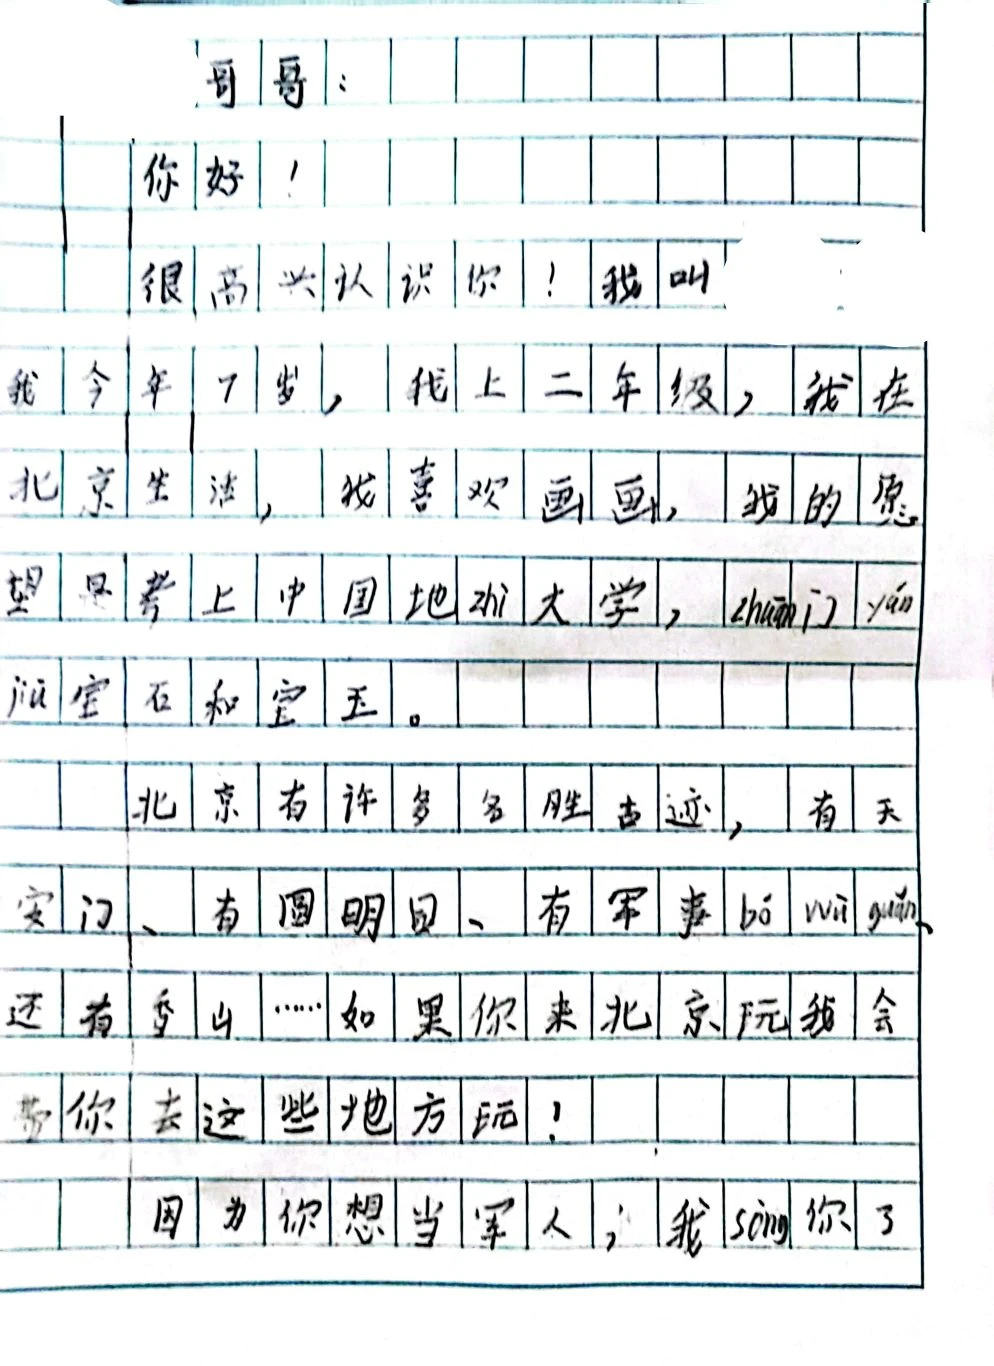 哥哥：
你好！
很高兴认识你！我叫
我今年7岁，我上二年级，我在
北京生活，我喜欢画画，我的愿
望是考上中国地zhì大学，zhuān门yán
jiū宝石和宝玉。
北京有许多名胜古迹，有天
安门、有圆明园、有军事bó wù guǎn、
还有香山……如果你来北京玩我会
带你去这些地方玩！
因为你想当军人，我sòng你了